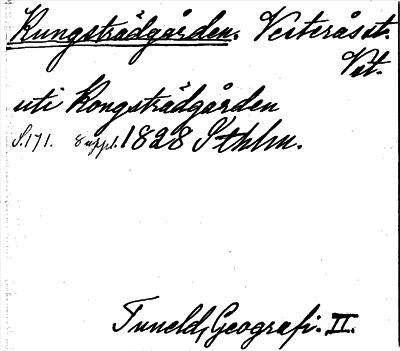 Kungsträdgården. Vesterås st.
Vst.
uti Kongsträdgården
S. 171. 8 uppl. 1828 Sthlm.
Tuneld, Geografi. II.